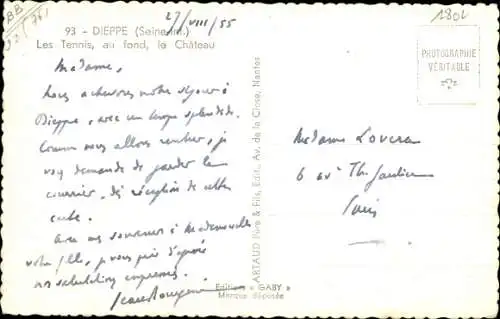 27/VIII/55
1802
93 - DIEPPE (Seine-Inf.)
Les Tennis, au fond, le Château
Madame,
Nous achevons notre séjour à
Dieppe, avec un temps splendide.
Comme nous allons rentrer, je
vous demande de garder le
courrier, dès réception de cette
carte.
Avec nos souvenirs à Mademoiselle
votre fille, je vous prie d'agréer
nos salutations empressées.
PHOTOGRAPHIE
VÉRITABLE
Madame Lovera
6 av. Th. Gautier
Paris
ARTAUD Père & Fils, Édit., Av. de la Close, Nantes
Edition « GABY »
Marque déposée